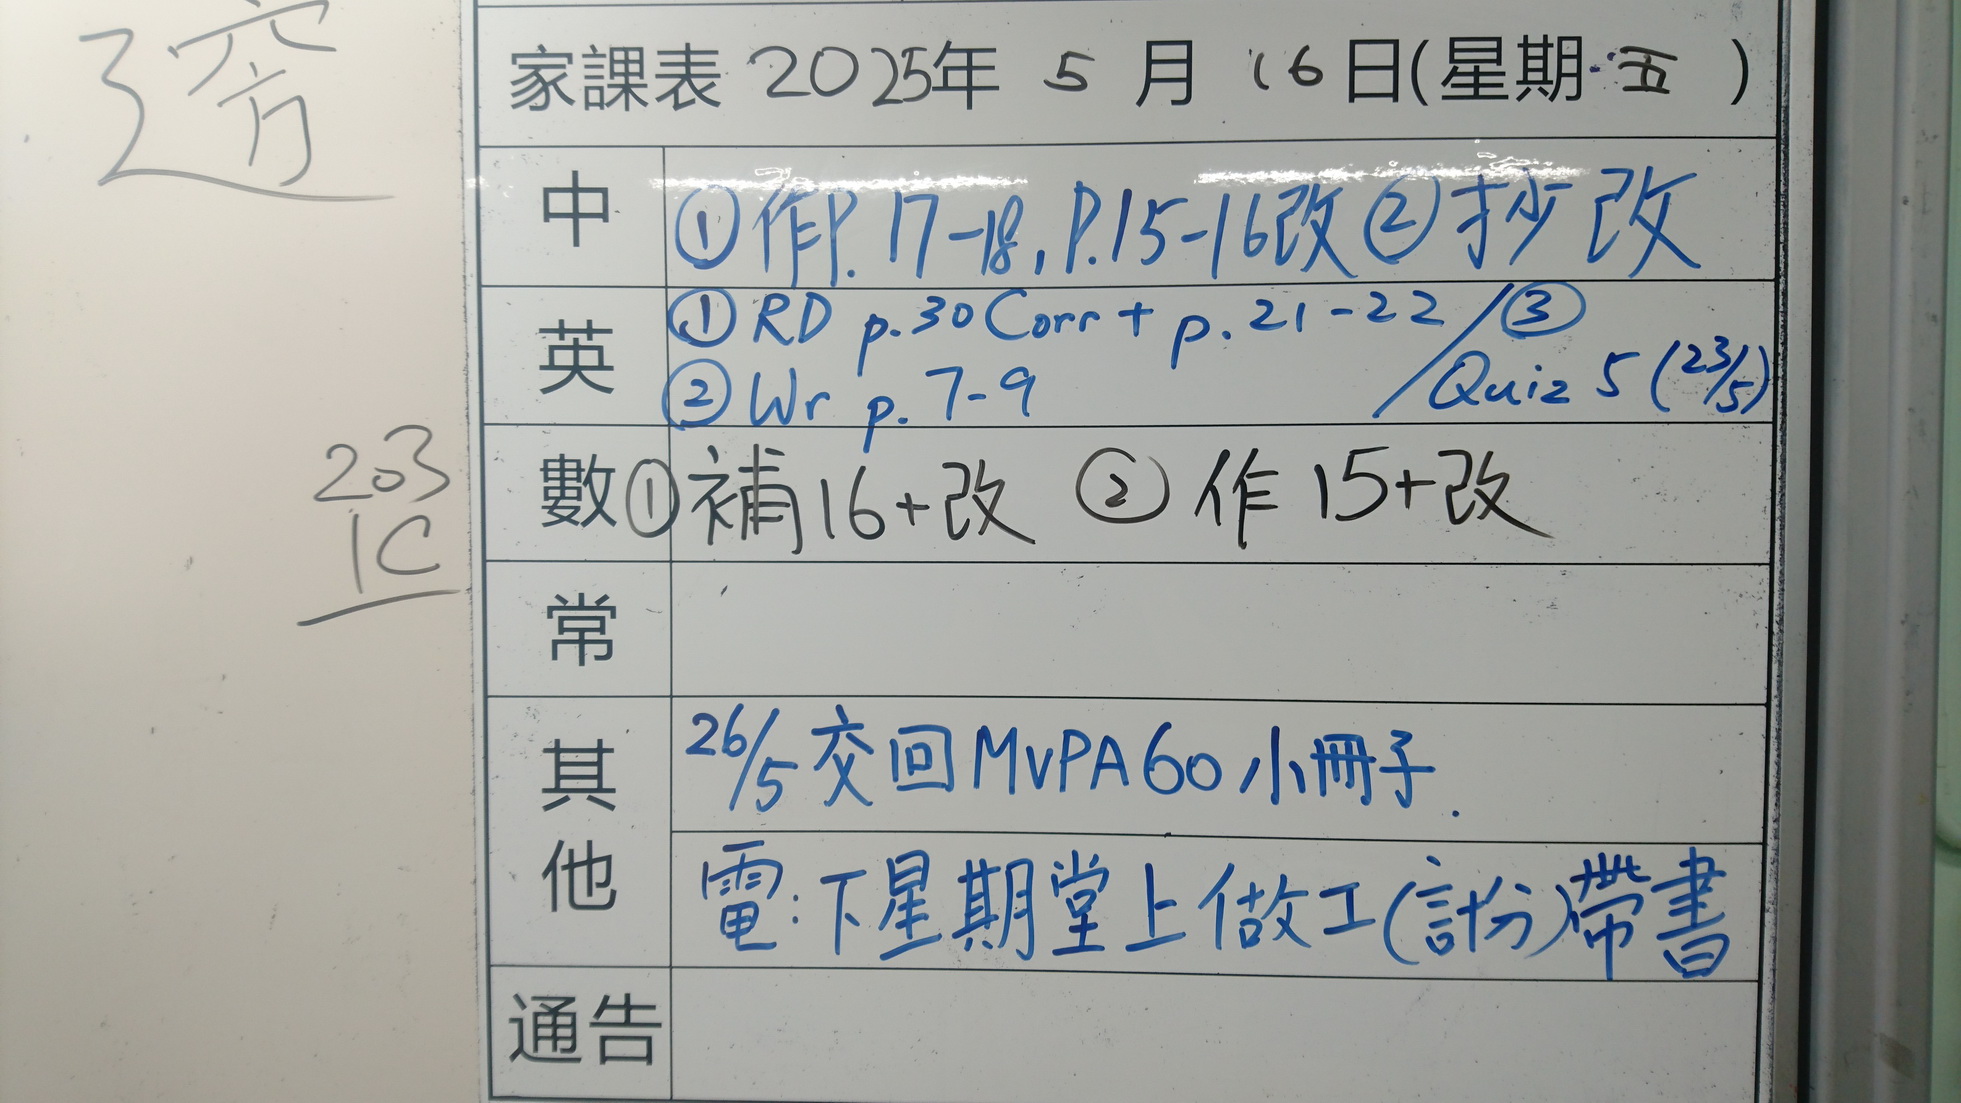 家課表 2025年 5 月 16日(星期 五 )
中 ①作P.17-18, P.15-16改 ②抄改
英 ① RD p.30 Corr + p.21-22 / ③
② Wr p.7-9 / Quiz 5 (23/5)
數 ① 補16+改 ② 作15+改
常
其他 26/5 交回MVPA60小冊子.
電:下星期堂上做工(計分)帶書
通告
203
1C